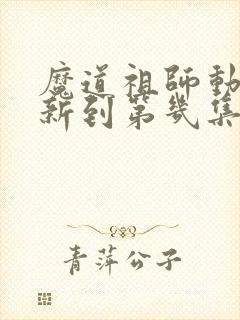 魔道祖師動
新到第幾集
青萍公子